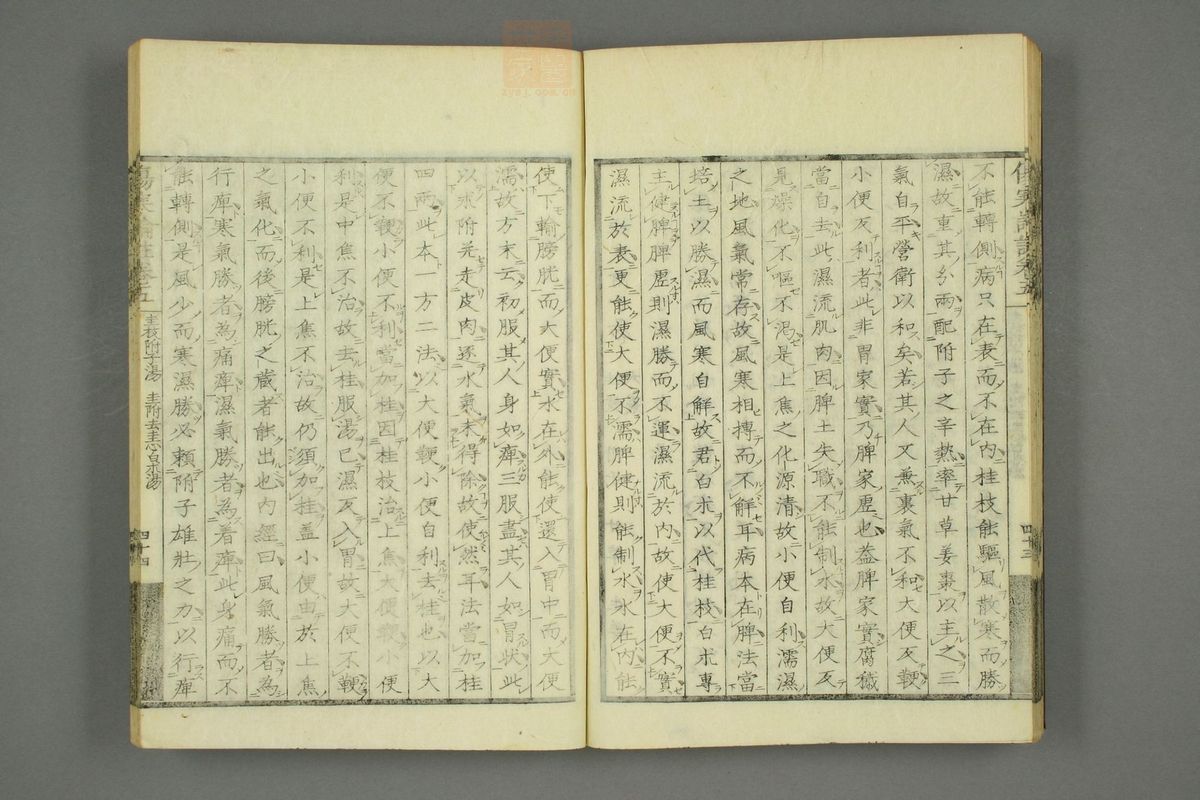 不能轉側病只在表而不在內桂枝能驅風散寒而勝
濕故重其分兩配附子之辛熱率甘草姜棗以主之三
氣自平營衛以和矣若其人又兼裏氣不和大便反鞕
小便反利者此非胃家實乃脾家虛也蓋脾家實腐穢
當自去此濕流肌肉因脾土失職不能制水故大便反
見燥化不嘔不渴是上焦之化源清故小便自利濡濕
之地風氣常存故風寒相搏而不解耳病本在脾法當
培土以勝濕而風寒自解故君白朮以代桂枝白朮專
主健脾脾虛則濕勝而不運濕流於內故使大便不實
濕流於表更能使大便不濡脾健則能制水水在內能
四十三
使下輸膀胱而大便實水在外能使還入胃中而大便
濡故方末云初服其人身如痺三服盡其人如冒狀此
以朮附並走皮肉逐水氣未得除故使然耳法當加桂
四兩此本一方二法以大便鞕小便自利去桂也以大
便不鞕小便不利當加桂因桂枝治上焦大便鞕小便
利是中焦不治故去桂服湯已濕反入胃故大便不鞕
小便不利是上焦不治故仍須加桂蓋小便由於上焦
之氣化而後膀胱之藏者能出也內經曰風氣勝者為
行痺寒氣勝者為痛痺濕氣勝者為着痺此身痛而不
能轉側是風少而寒濕勝必賴附子雄壯之力以行痺
桂枝附子湯 桂附去桂加白朮湯
四十四